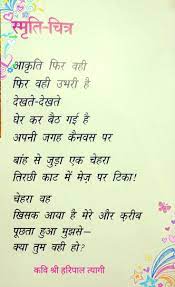 स्मृति-चित्र
आकृति फिर वही
फिर वही उभरी है
देखते-देखते
घेर कर बैठ गई है
अपनी जगह कैनवस पर
बांह से जुड़ा एक चेहरा
तिरछी काट में मेज़ पर टिका!
चेहरा वह
खिसक आया है मेरे और क़रीब
पूछता हुआ मुझसे–
क्या तुम वही हो?
कवि श्री हरिपाल त्यागी